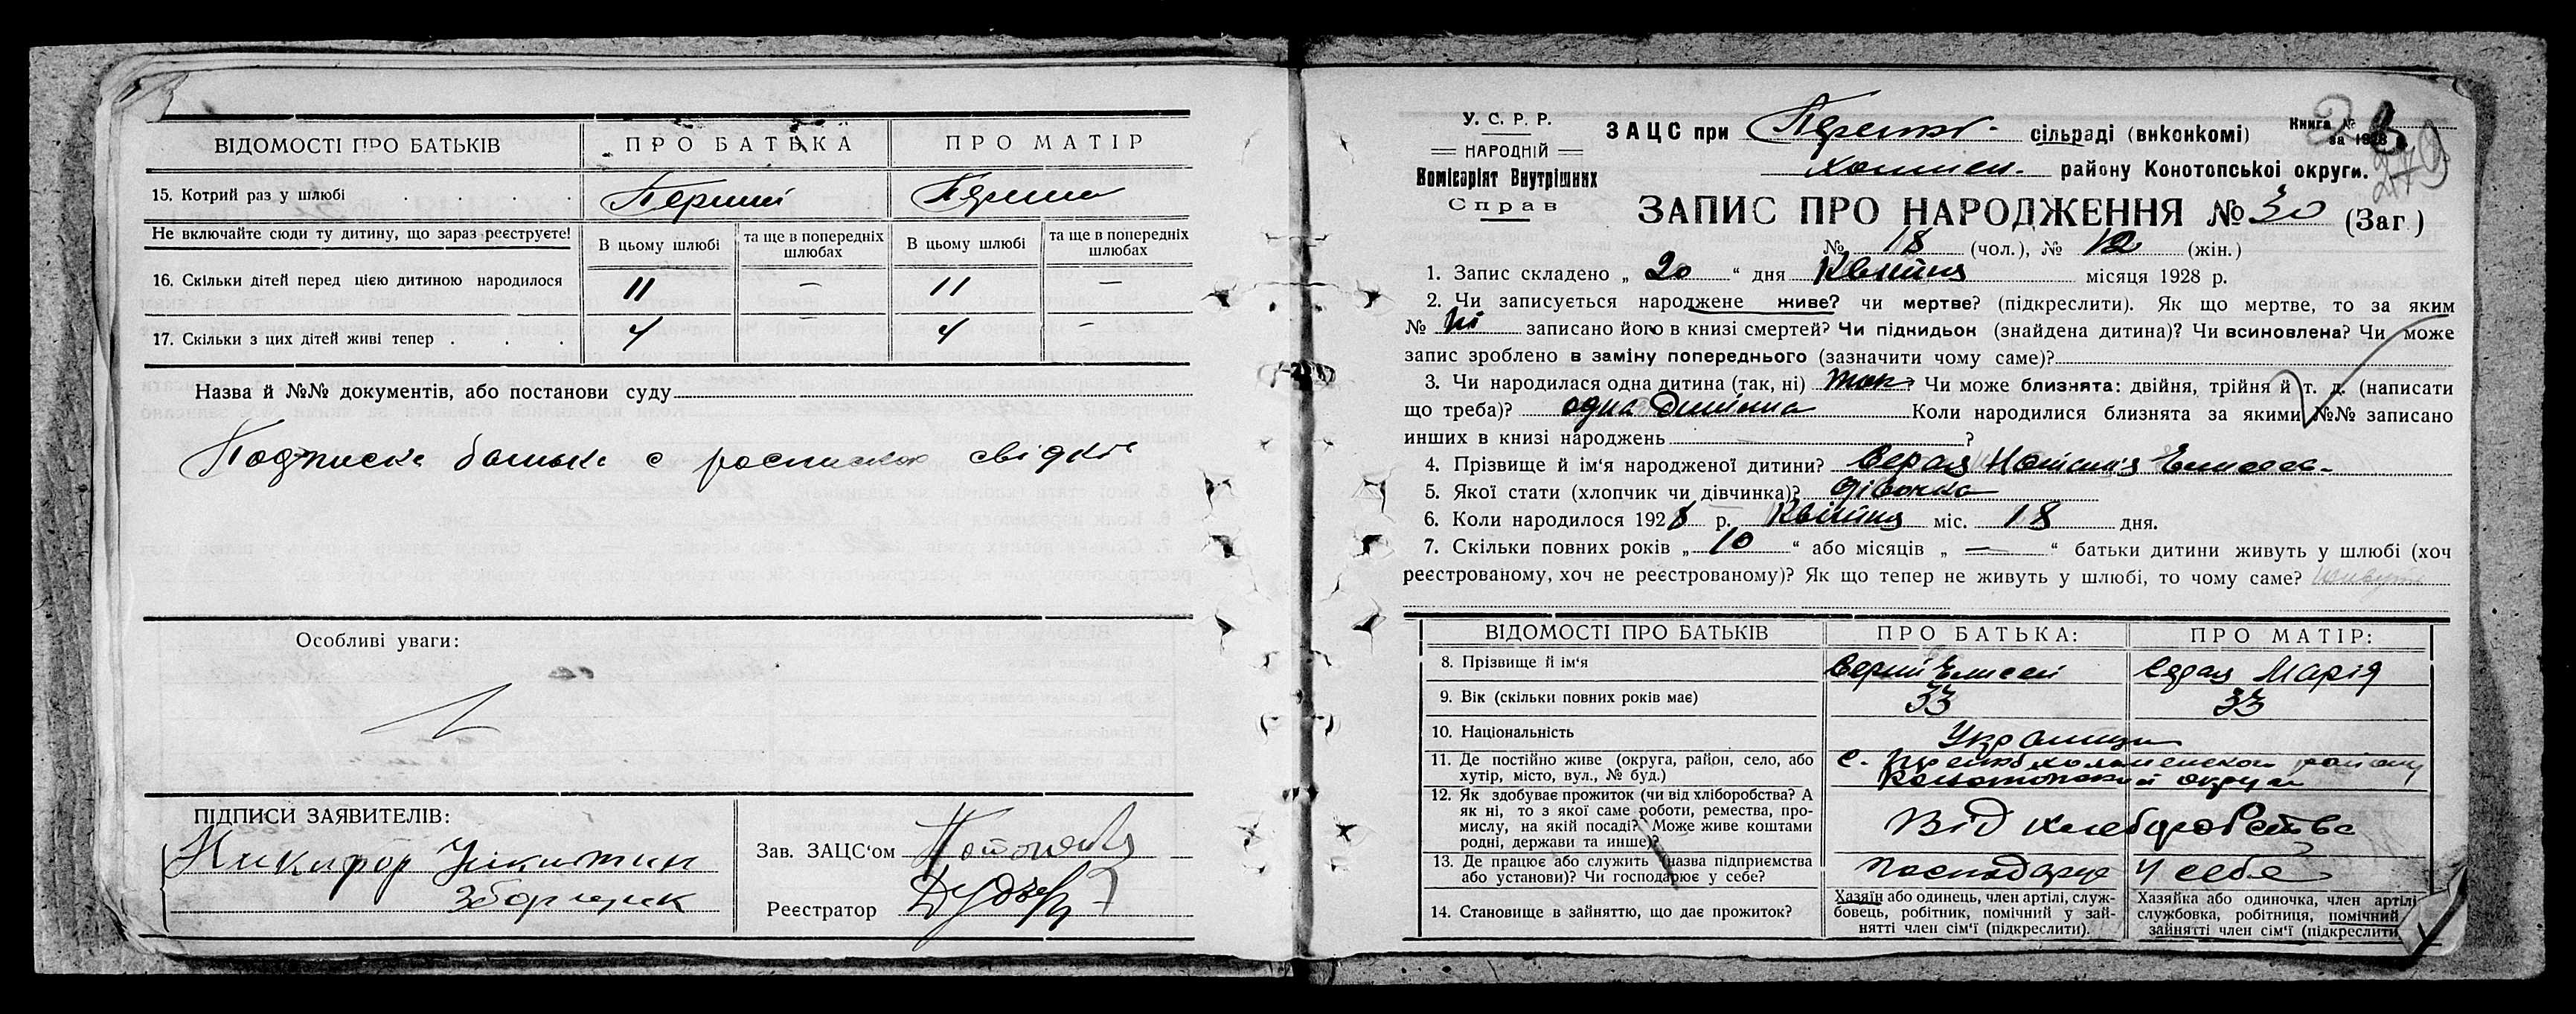 ВІДОМОСТІ ПРО БАТЬКІВ | ПРО БАТЬКА | ПРО МАТІР
15. Котрий раз у шлюбі . . . . | Перший | Перша
Не включайте сюди ту дитину, що зараз реєструєте! | В цьому шлюбі | та ще в попередніх шлюбах | В цьому шлюбі | та ще в попередніх шлюбах
16. Скільки дітей перед цією дитиною народилося | 11 | — | 11 | —
17. Скільки з цих дітей живі тепер . . . | 4 | — | 4 | —
Назва й №№ документів, або постанови суду
Подписка батька с роспискою свідків
Особливі уваги:
ПІДПИСИ ЗАЯВИТЕЛІВ:
Никифор Никитин
Зборщик
Зав. ЗАЦС'ом
Реєстратор
У. С. Р. Р.
НАРОДНІЙ
Комісаріят Внутрішних
Справ
ЗАЦС при сільраді (виконкомі)
Книга №
за 1928 р.
279
району Конотопської округи.
ЗАПИС ПРО НАРОДЖЕННЯ № 30 (Заг.)
№ 18 (чол.), № 12 (жін.)
1. Запис складено „ 20 “ дня Квітня місяця 1928 р.
2. Чи записується народжене живе? чи мертве? (підкреслити). Як що мертве, то за яким
№ ні записано його в книзі смертей? Чи піднидьон (знайдена дитина)? Чи всиновлена? Чи може
запис зроблено в заміну попереднього (зазначити чому саме)?
3. Чи народилася одна дитина (так, ні) так? Чи може близнята: двійня, трійня й т. д. (написати
що треба)? одна дитина Коли народилися близнята за якими №№ записано
инших в книзі народжень ?
4. Прізвище й ім'я народженої дитини?
5. Якої стати (хлопчик чи дівчинка)? дівочка
6. Коли народилося 1928 р. Квітня міс. 18 дня.
7. Скільки повних років „ 10 “ або місяців „ — “ батьки дитини живуть у шлюбі (хоч
реєстрованому, хоч не реєстрованому)? Як що тепер не живуть у шлюбі, то чому саме? живуть
ВІДОМОСТІ ПРО БАТЬКІВ | ПРО БАТЬКА: | ПРО МАТІР:
8. Прізвище й ім'я | Елисей | Марія
9. Вік (скільки повних років має) | 33 | 33
10. Національність | Українци
11. Де постійно живе (округа, район, село, або
хутір, місто, вул., № буд.) | с. району
Конотопской округи
12. Як здобуває прожиток (чи від хліборобства? А
як ні, то з якої саме роботи, ремества, про-
мислу, на якій посаді? Може живе коштами
родні, держави та инше)? | Від хлеборобства
13. Де працює або служить (назва підприємства
або установи)? Чи господарює у себе? | господарює у себе
14. Становище в зайняттю, що дає прожиток? | Хазяїн або одинець, член артілі, служ-
бовець, робітник, помічний у зай-
нятті член сім'ї (підкреслити). | Хазяйка або одиночка, член артілі
службовка, робітниця, помічний
зайнятті член сім'ї (підкреслити